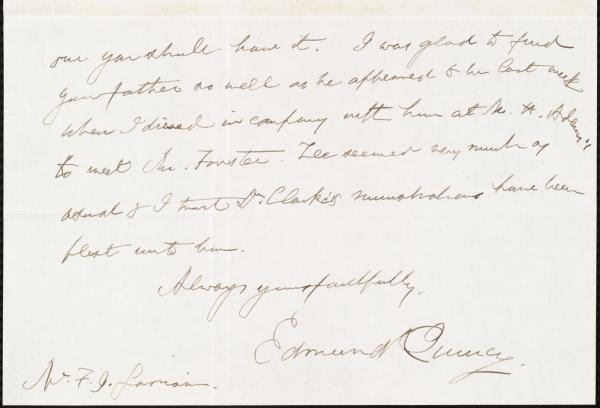 one you shall have it. I was glad to find
your father as well as he appeared to be last week
when I dined in company with him at Mr. H. Adams's
to meet Mr. Forster. He seemed very much as
usual & I trust Dr. Clarke's ministrations have been
blest unto him.
Always yours faithfully,
Edmund Quincy.
Mr. F. J. Garrison.